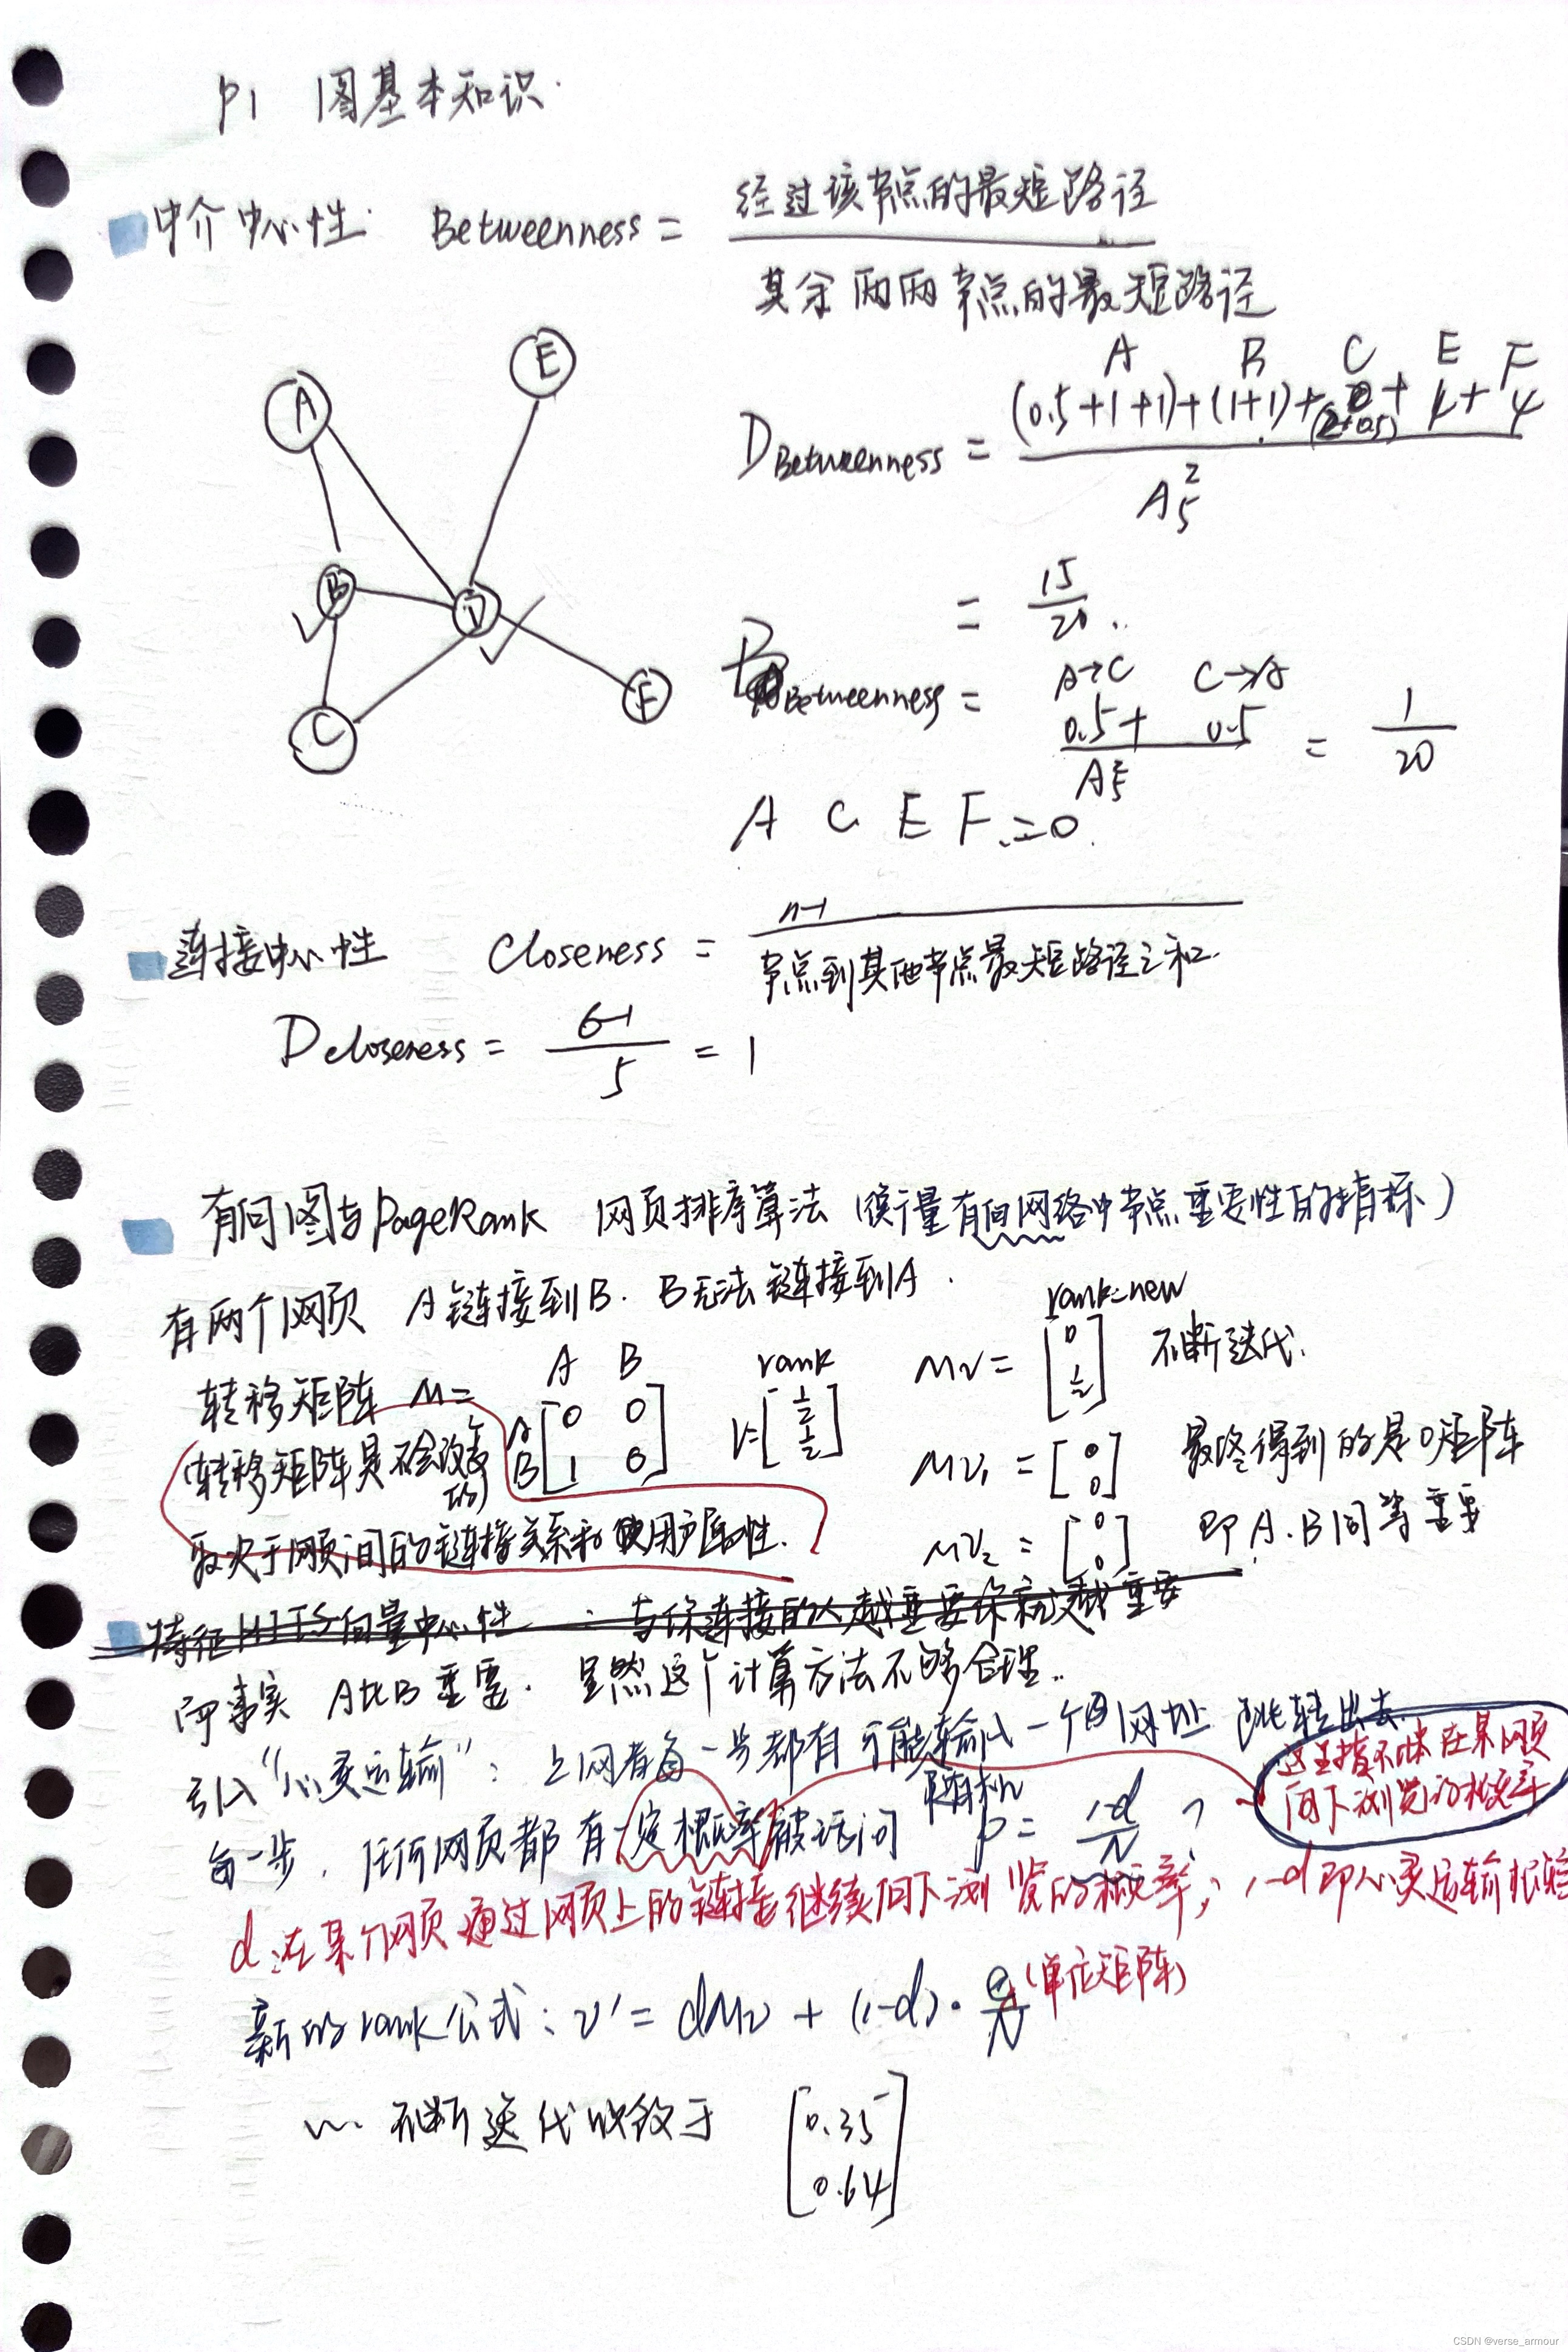 P1 图基本知识.
中介中心性: Betweenness = 经过该节点的最短路径
其余两两节点的最短路径
A B C E F
D Betweenness = (0.5+1+1)+(1+1)+(2+0.5)+4+4
A₅²
= 15
20
A→C C→A
Betweenness = 0.5 + 0.5 = 1
A₅² 20
A C E F = 0.
A
E
B
D
F
C
连接中心性 Closeness = n-1
节点到其他节点最短路径之和.
D closeness = 6-1 = 1
5
有向图与PageRank 网页排序算法 (衡量有向网络中节点重要性的指标)
有两个网页 A链接到B. B无法链接到A.
转移矩阵 M=
A B
A [0 0]
B [1 0]
rank
V= [1/2 1/2]
rank=new
MV = [0 1/2] 不断迭代.
(转移矩阵是不会改变的)
取决于网页间的链接关系和使用户属性.
MV₁ = [0 0] 最终得到的是0矩阵
MV₂ = [0 0] 即A.B同等重要
特征HITS向量中心性 : 与你连接的人越重要你就越重要
而事实 A比B重要. 显然这个计算方法不够合理..
引入“心灵运输”: 上网者每一步都有可能输入一个网址
每一步, 任何网页都有一定概率被访问 随机 p = 1-d
N
这里指不在某网页
向下浏览的概率
d:在某个网页通过网页上的链接继续向下浏览的概率; 1-d即心灵运输概率
新的rank公式: v' = dMv + (1-d)·e (单位矩阵)
N
不断迭代收敛于 [0.35 0.64]
CSDN @verse_armour